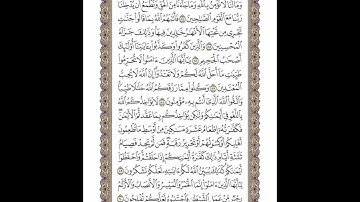 وَمَا لَنَا لَا نُؤْمِنُ بِاللَّهِ وَمَا جَاءَنَا مِنَ الْحَقِّ وَنَطْمَعُ أَن يُدْخِلَنَا
رَبُّنَا مَعَ الْقَوْمِ الصَّالِحِينَ ۝ فَأَثَابَهُمُ اللَّهُ بِمَا قَالُوا جَنَّاتٍ
تَجْرِي مِن تَحْتِهَا الْأَنْهَارُ خَالِدِينَ فِيهَا وَذَٰلِكَ جَزَاءُ
الْمُحْسِنِينَ ۝ وَالَّذِينَ كَفَرُوا وَكَذَّبُوا بِآيَاتِنَا أُولَٰئِكَ
أَصْحَابُ الْجَحِيمِ ۝ يَا أَيُّهَا الَّذِينَ آمَنُوا لَا تُحَرِّمُوا
طَيِّبَاتِ مَا أَحَلَّ اللَّهُ لَكُمْ وَلَا تَعْتَدُوا إِنَّ اللَّهَ لَا يُحِبُّ
الْمُعْتَدِينَ ۝ وَكُلُوا مِمَّا رَزَقَكُمُ اللَّهُ حَلَالًا طَيِّبًا
وَاتَّقُوا اللَّهَ الَّذِي أَنتُم بِهِ مُؤْمِنُونَ ۝ لَا يُؤَاخِذُكُمُ اللَّهُ
بِاللَّغْوِ فِي أَيْمَانِكُمْ وَلَٰكِن يُؤَاخِذُكُم بِمَا عَقَّدتُّمُ الْأَيْمَانَ
فَكَفَّارَتُهُ إِطْعَامُ عَشَرَةِ مَسَاكِينَ مِنْ أَوْسَطِ مَا تُطْعِمُونَ
أَهْلِيكُمْ أَوْ كِسْوَتُهُمْ أَوْ تَحْرِيرُ رَقَبَةٍ فَمَن لَّمْ يَجِدْ فَصِيَامُ
ثَلَاثَةِ أَيَّامٍ ذَٰلِكَ كَفَّارَةُ أَيْمَانِكُمْ إِذَا حَلَفْتُمْ وَاحْفَظُوا
أَيْمَانَكُمْ كَذَٰلِكَ يُبَيِّنُ اللَّهُ لَكُمْ آيَاتِهِ لَعَلَّكُمْ تَشْكُرُونَ ۝
يَا أَيُّهَا الَّذِينَ آمَنُوا إِنَّمَا الْخَمْرُ وَالْمَيْسِرُ وَالْأَنصَابُ وَالْأَزْلَامُ
رِجْسٌ مِّنْ عَمَلِ الشَّيْطَانِ فَاجْتَنِبُوهُ لَعَلَّكُمْ تُفْلِحُونَ ۝